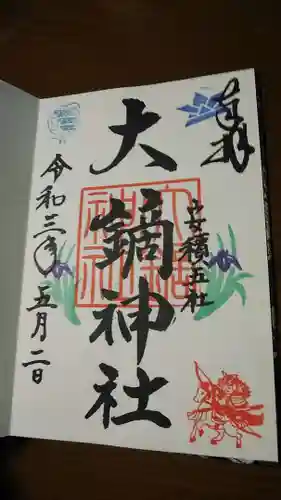 奉拝
安積五社
大鏑神社
令和三年五月二日